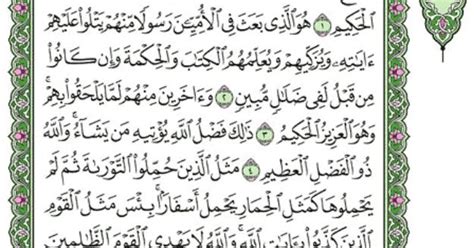 ٱلۡحَكِيمِ ١ هُوَ ٱلَّذِي بَعَثَ فِي ٱلۡأُمِّيِّـۧنَ رَسُولٗا مِّنۡهُمۡ يَتۡلُواْ عَلَيۡهِمۡ
ءَايَٰتِهِۦ وَيُزَكِّيهِمۡ وَيُعَلِّمُهُمُ ٱلۡكِتَٰبَ وَٱلۡحِكۡمَةَ وَإِن كَانُواْ
مِن قَبۡلُ لَفِي ضَلَٰلٖ مُّبِينٖ ٢ وَءَاخَرِينَ مِنۡهُمۡ لَمَّا يَلۡحَقُواْ بِهِمۡۚ
وَهُوَ ٱلۡعَزِيزُ ٱلۡحَكِيمُ ٣ ذَٰلِكَ فَضۡلُ ٱللَّهِ يُؤۡتِيهِ مَن يَشَآءُۚ وَٱللَّهُ
ذُو ٱلۡفَضۡلِ ٱلۡعَظِيمِ ٤ مَثَلُ ٱلَّذِينَ حُمِّلُواْ ٱلتَّوۡرَىٰةَ ثُمَّ لَمۡ
يَحۡمِلُوهَا كَمَثَلِ ٱلۡحِمَارِ يَحۡمِلُ أَسۡفَارَۢاۚ بِئۡسَ مَثَلُ ٱلۡقَوۡمِ
ٱلَّذِينَ كَذَّبُواْ بِـَٔايَٰتِ ٱللَّهِۚ وَٱللَّهُ لَا يَهۡدِي ٱلۡقَوۡمَ ٱلظَّٰلِمِينَ